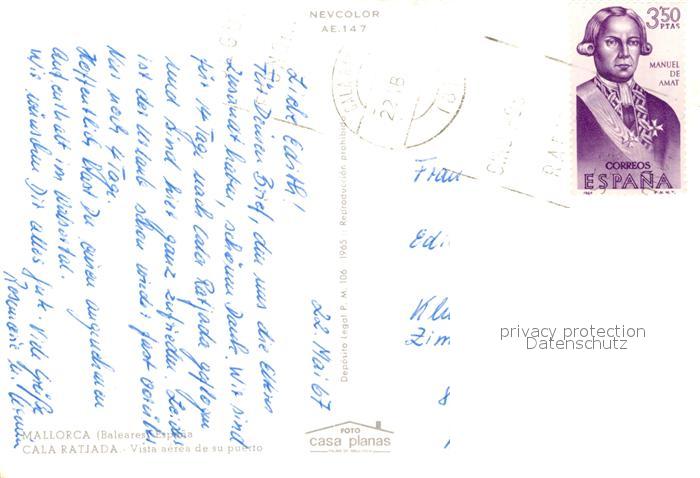 NEVCOLOR
AE.147
3'50
PTAS
MANUEL
DE
AMAT
CORREOS
ESPAÑA
22 Mai 67
Liebe Edith!
Für Deinen Brief, den uns die Eltern
zusandt haben, schönen Dank. Wir sind
für 14 Tage nach Cala Ratjada geflogen
und sind hier ganz zufrieden. Leider
ist der Urlaub schon wieder fast vorbei
Nur noch 4 Tag.
Hoffentlich hast Du einen angenehmen
Aufenthalt im
Wir wünschen Dir alles Gute. Viele Grüße
Rosemarie
Frau
Edi
Klu
Zim
8
privacy protection
Datenschutz
Depósito Legal P. M. 106 1965 - Reproducción prohibida
MALLORCA (Baleares) España
CALA RATJADA.- Vista aérea de su puerto
FOTO
casa planas